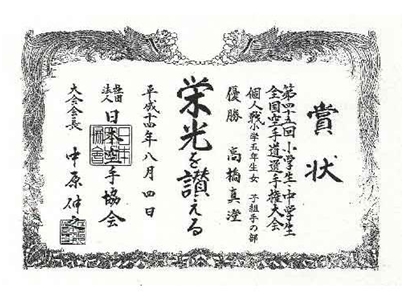 賞状
第四十五回 小学生・中学生
全国空手道選手権大会
個人戦小学五年生女子組手の部
優勝 高橋真澄
栄光を讃える
平成十四年八月四日
社団法人 日本空手協会
大会会長 中原伸之